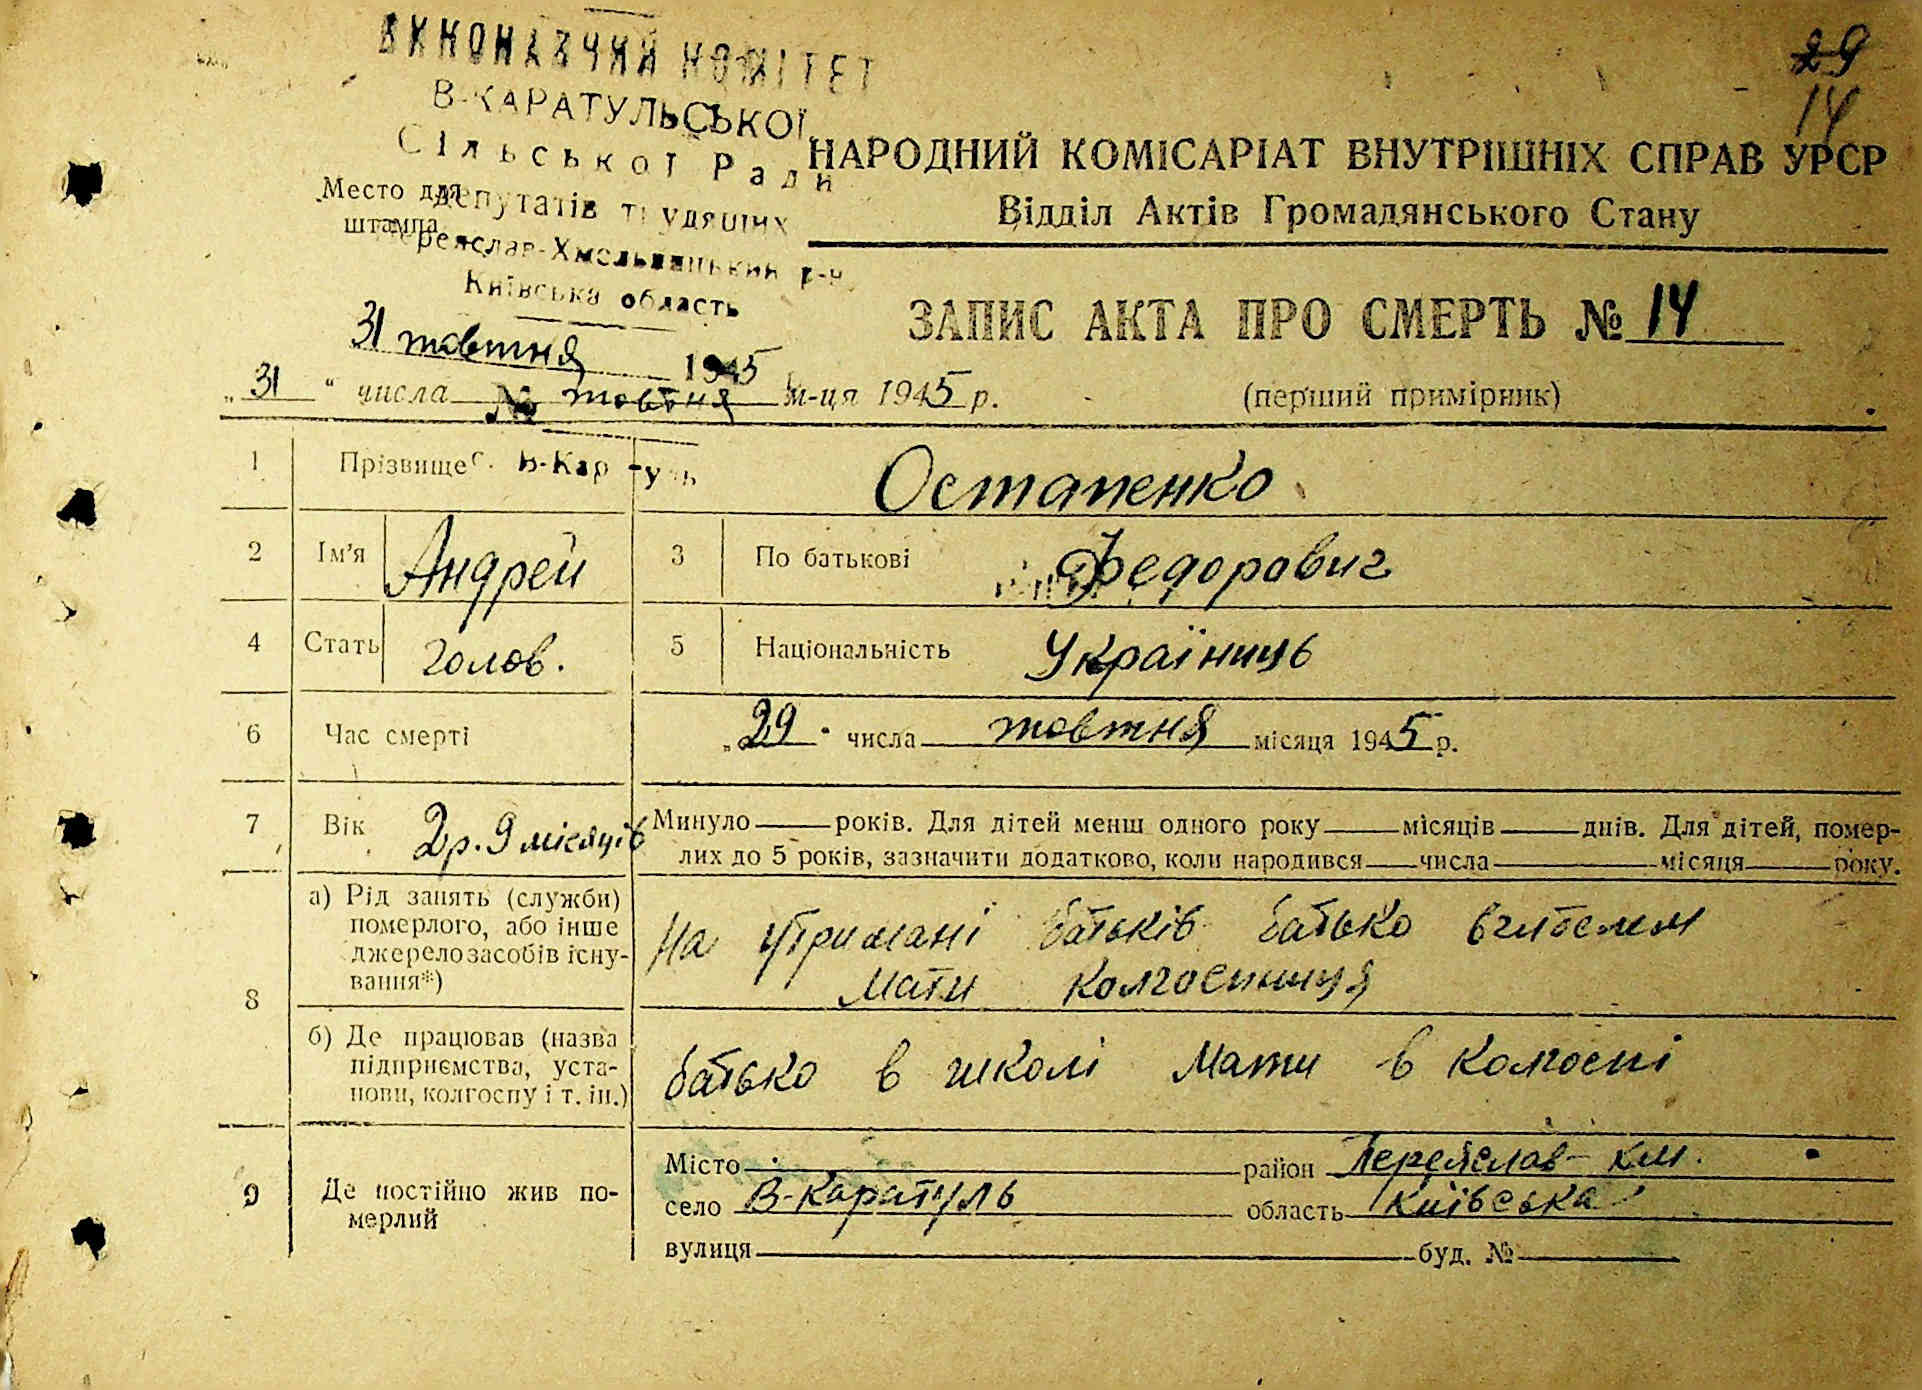 29
14
ВИКОНАВЧИЙ КОМІТЕТ
В-КАРАТУЛЬСЬКОЇ
Сільської Ради
депутатів трудящих
Переяслав-Хмельницький р-н
Київська область
Место для
штампа
31 жовтня 1945
№
с. В-Каратуль
НАРОДНИЙ КОМІСАРІАТ ВНУТРІШНІХ СПРАВ УРСР
Відділ Актів Громадянського Стану
ЗАПИС АКТА ПРО СМЕРТЬ № 14
„31“ числа жовтня м-ця 1945 р. (перший примірник)
1 Прізвище Остапенко
2 Ім'я Андрей 3 По батькові Федорович
4 Стать голов. 5 Національність Україниць
6 Час смерті „29“ числа жовтня місяця 1945 р.
7 Вік 2 р. 9 місяців Минуло — років. Для дітей менш одного року — місяців — днів. Для дітей, помер-
лих до 5 років, зазначити додатково, коли народився — числа — місяця — року.
8 а) Рід занять (служби)
померлого, або інше
джерело засобів існу-
вання*)
На утримані батьків батько вчителем
Мати колгоспниця
б) Де працював (назва
підприємства, уста-
нови, колгоспу і т. ін.)
батько в школі Мати в колгоспі
9 Де постійно жив по-
мерлий
Місто — район Переяслав-хм.
село В-Каратуль область Київська
вулиця — буд. № —